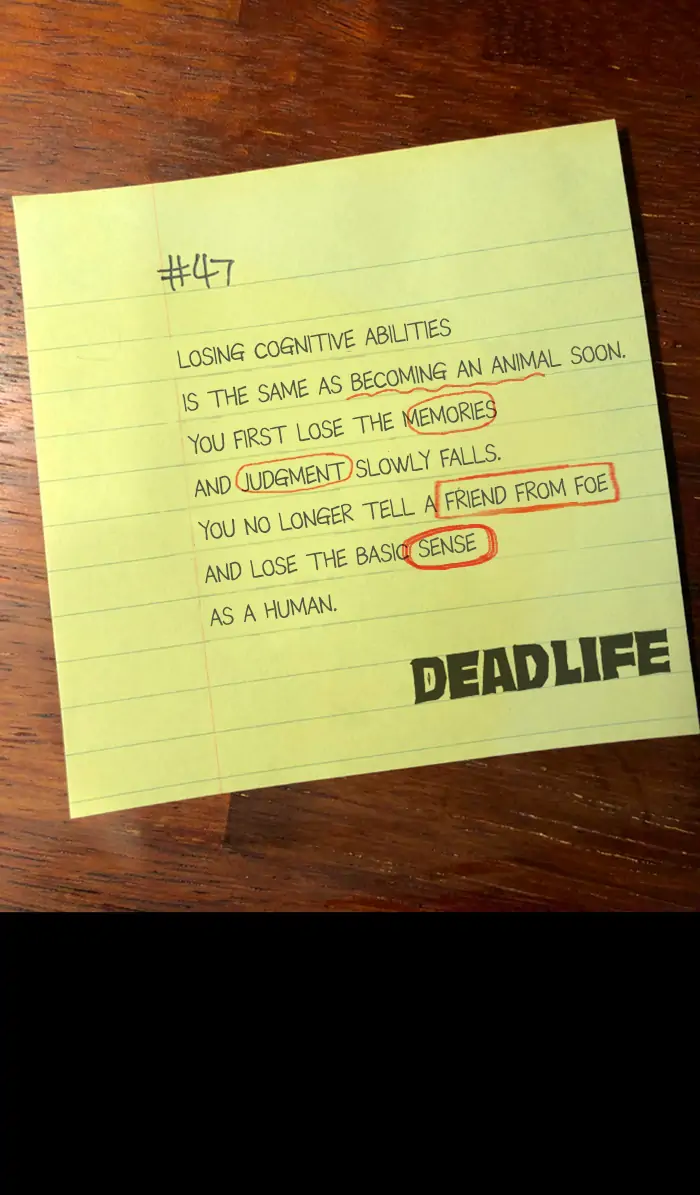 #47
LOSING COGNITIVE ABILITIES
IS THE SAME AS BECOMING AN ANIMAL SOON.
YOU FIRST LOSE THE MEMORIES
AND JUDGMENT SLOWLY FALLS.
YOU NO LONGER TELL A FRIEND FROM FOE
AND LOSE THE BASIC SENSE
AS A HUMAN.
DEADLIFE